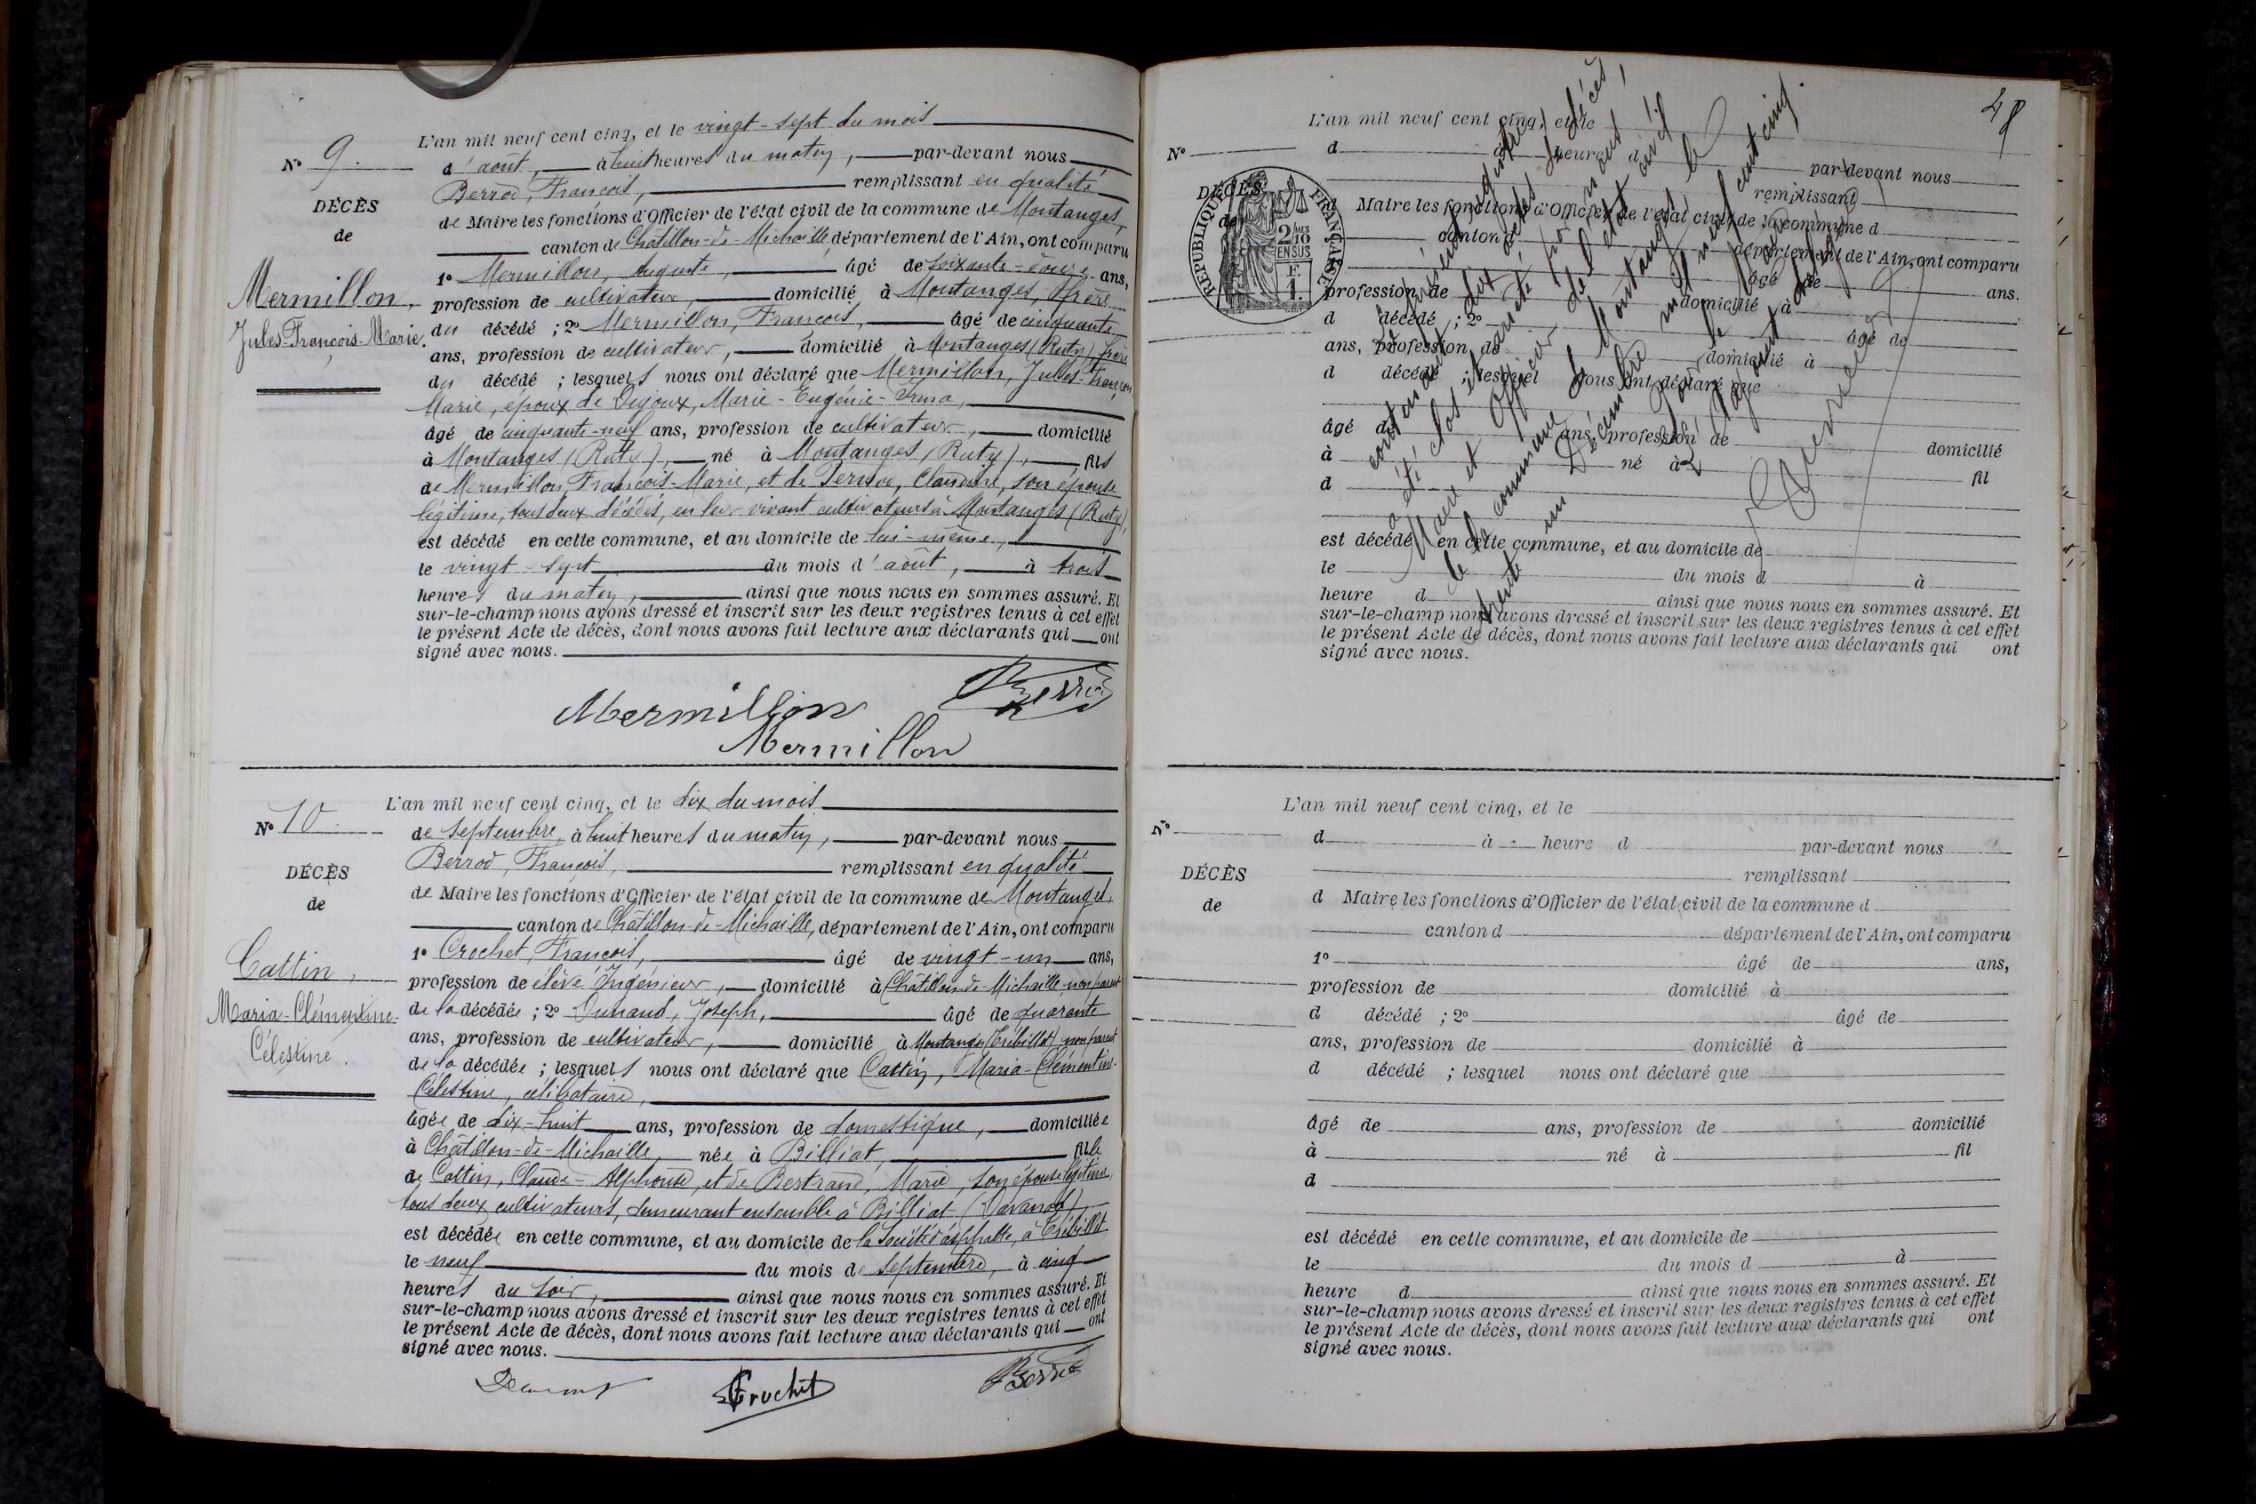 L'an mil neuf cent cinq, et le vingt-sept du mois
N° 9. d'août, à huit heures du matin, par-devant nous
Berrod, François, remplissant en qualité
DÉCÈS
de Maire les fonctions d'Officier de l'état civil de la commune de Montanges,
de
canton de Châtillon-de-Michaille, département de l'Ain, ont comparu
1° Mermillon, Auguste, âgé de soixante-douze ans,
Mermillon,
profession de cultivateur, domicilié à Montanges, frère
Jules-François-Marie.
du décédé ; 2° Mermillon, François, âgé de cinquante
ans, profession de cultivateur, domicilié à Montanges (Ruty), frère
du décédé ; lesquels nous ont déclaré que Mermillon, Jules-François
Marie, époux de Dujoux, Marie-Eugénie-Irma,
âgé de cinquante-neuf ans, profession de cultivateur, domicilié
à Montanges (Ruty), né à Montanges (Ruty), fils
de Mermillon, François-Marie, et de Claudine, son épouse
légitime, tous deux décédés, en leur vivant cultivateurs à Montanges (Ruty),
est décédé en cette commune, et au domicile de lui-même,
le vingt-sept du mois d'août, à trois
heures du matin, ainsi que nous nous en sommes assuré. Et
sur-le-champ nous avons dressé et inscrit sur les deux registres tenus à cet effet
le présent Acte de décès, dont nous avons fait lecture aux déclarants qui ont
signé avec nous.
Mermillon Berrod
Mermillon
L'an mil neuf cent cinq, et le dix du mois
N° 10. de septembre, à huit heures du matin, par-devant nous
Berrod, François, remplissant en qualité
DÉCÈS
de Maire les fonctions d'Officier de l'état civil de la commune de Montanges,
de
canton de Châtillon-de-Michaille, département de l'Ain, ont comparu
1° Crochet, François, âgé de vingt-un ans,
Cattin,
profession de élève Ingénieur, domicilié à Châtillon-de-Michaille, non parent
Maria-Clémentine-
de la décédée ; 2° Dunand, Joseph, âgé de quarante
ans, profession de cultivateur, domicilié à Montanges (Trébillet) non parent
Célestine.
de la décédée ; lesquels nous ont déclaré que Cattin, Maria-Clémentine-
Célestine, célibataire,
âgée de dix-huit ans, profession de domestique, domiciliée
à Châtillon-de-Michaille, née à Billiat, fille
de Cattin, Claude-Alphonse, et de Bertrand, Marie, son épouse légitime,
tous deux cultivateurs, demeurant ensemble à Billiat (Davanod)
est décédée en cette commune, et au domicile de la Société d'asphalte, à Trébillet
le neuf du mois de septembre, à cinq
heures du soir, ainsi que nous nous en sommes assuré. Et
sur-le-champ nous avons dressé et inscrit sur les deux registres tenus à cet effet
le présent Acte de décès, dont nous avons fait lecture aux déclarants qui ont
signé avec nous.
Dunand Crochet Berrod
48
L'an mil neuf cent cinq, et le
N° d à heure d par-devant nous
remplissant
DÉCÈS
de
d Maire les fonctions d'Officier de l'état civil de la commune d
canton d département de l'Ain, ont comparu
âgé de ans.
profession de domicilié à
d décédé ; 2° âgé de
ans, profession de domicilié à
d décédé ; lesquel nous ont déclaré que
âgé de ans, profession de domicilié
à né à fil
d
est décédé en cette commune, et au domicile de
le du mois d à
heure d ainsi que nous nous en sommes assuré. Et
sur-le-champ nous avons dressé et inscrit sur les deux registres tenus à cet effet
le présent Acte de décès, dont nous avons fait lecture aux déclarants qui ont
signé avec nous.
RÉPUBLIQUE FRANÇAISE
2/10 EN SUS
Le présent registre
contenant dix actes de décès,
a été clos et arrêté par nous
Maire et Officier de l'état civil
de la commune de Montanges le
trente un Décembre mil neuf cent cinq.
L'an mil neuf cent cinq, et le
N° d à heure d par-devant nous
remplissant
DÉCÈS
de
d Maire les fonctions d'Officier de l'état civil de la commune d
canton d département de l'Ain, ont comparu
1° âgé de ans,
profession de domicilié à
d décédé ; 2° âgé de
ans, profession de domicilié à
d décédé ; lesquel nous ont déclaré que
âgé de ans, profession de domicilié
à né à fil
d
est décédé en cette commune, et au domicile de
le du mois d à
heure d ainsi que nous nous en sommes assuré. Et
sur-le-champ nous avons dressé et inscrit sur les deux registres tenus à cet effet
le présent Acte de décès, dont nous avons fait lecture aux déclarants qui ont
signé avec nous.